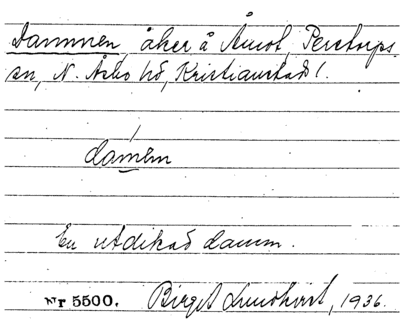 Dammen, åker å Åmot, Perstorps
sn, N. Åsbo hd, Kristianstads l.
damen
En utdikad damm.
Nr 5500. Birgit Lundkvist, 1936.